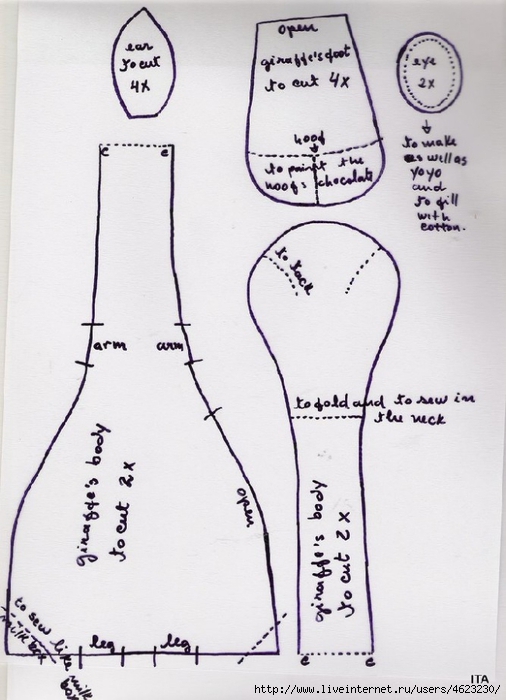 ear
to cut
4x
open
giraffe's foot
to cut 4x
hoof
to paint the
hoofs chocolate
eye
2x
to make
as well as
yoyo
and
to fill
with
cotton.
e e
arm arm
giraffe's body
to cut 2x
open
to sew like milk
milk box
box
leg leg
to tack
to fold and to sew in
the neck
giraffe's body
to cut 2x
e e
ITA
http://www.liveinternet.ru/users/4623230/